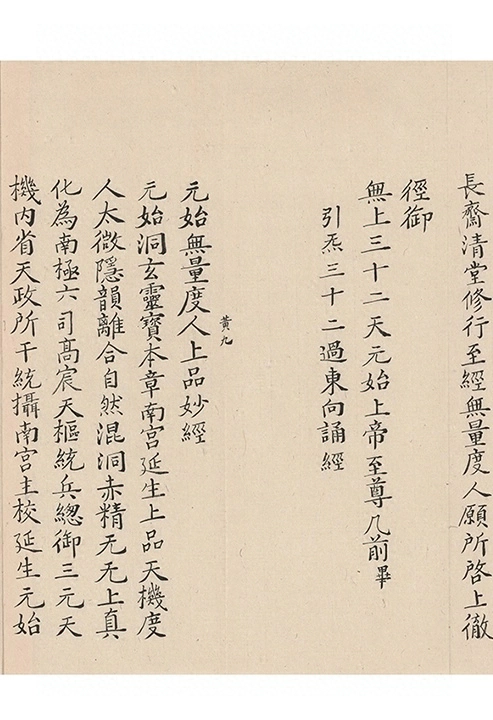 長齋清堂修行至經無量度人願所啓上徹
徑御
無上三十二天元始上帝至尊几前畢
引炁三十二過東向誦經
黃九
元始無量度人上品妙經
元始洞玄靈寶本章南宮延生上品天機度
人太微隱韻離合自然混洞赤精无无上真
化為南極六司高宸天樞統兵總御三元天
機內省天政所干統攝南宮主校延生元始